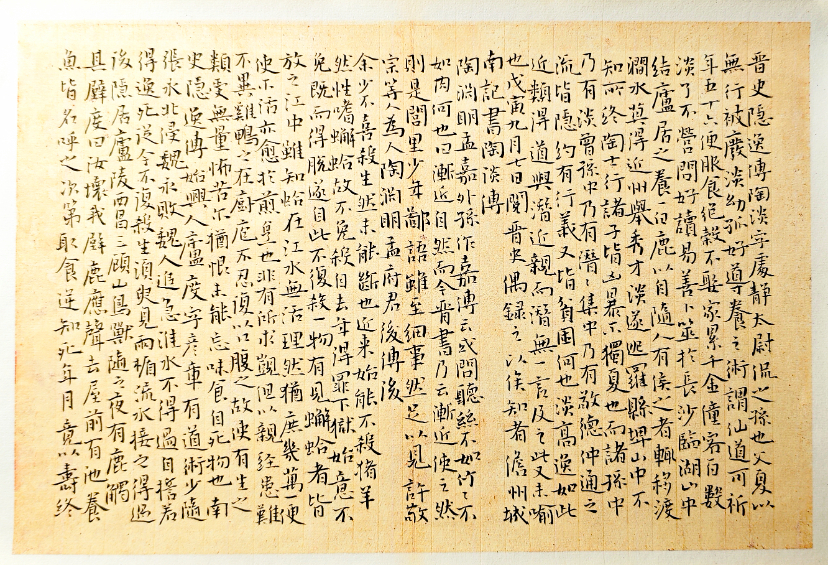 晉史隱逸傳陶淡字處靜太尉侃之孫也父夏以
無行被廢淡幼孤好導養之術謂仙道可祈
年五十六便服食絕穀不娶家累千金僮客百數
淡了不營問好讀易善卜筮於長沙臨湖山中
結廬居之養一白鹿以自隨人有候之者輒移渡
澗水莫得近州舉秀才淡遂逃羅縣埤山中不
知所終陶士行諸子皆凶暴不獨夏也而諸孫中
乃有淡曾孫中乃有潛潛集中乃有敬德仲通之
流皆隱約有行義又皆貧困何也淡高逸如此
近類得道與潛近親而潛無一言及之此又未喻
也戊寅九月七日閱晉史偶錄之以俟知者儋州城
南記書陶淡傳
陶淵明孟嘉外孫作嘉傳云或問聽絲不如竹竹不
如肉何也曰漸近自然而今晉書乃云漸近使之然
則是閭里少年鄙語雖至細事然足以見許敬
宗等人為人陶淵明孟府君後傳後
余少不喜殺生然未能斷也近來始能不殺猪羊
然性嗜蟹蛤故不免殺自去年得罪下獄始意不
免既而得脫遂自此不復殺一物有見蟹蛤者皆
放之江中雖知蛤在江水無活理然猶庶幾萬一便
使不活亦愈於煎烹也非有所求覬但以親經患難
不異雞鴨之在廚庖不忍復以口腹之故使有生之
類受無量怖苦爾猶恨未能忘味食自死物也南
史隱逸傳始興人盧度字彥章有道術少隨
張永北侵魏永敗魏人追急淮水不得過自誓若
得免死從今不復殺生須臾見兩楯流水接之得過
後隱居廬陵西昌三顧山鳥獸隨之夜有鹿觸
其壁度曰汝壞我壁鹿應聲去屋前有池養
魚皆名呼之次第取食逆知死年月竟以壽終